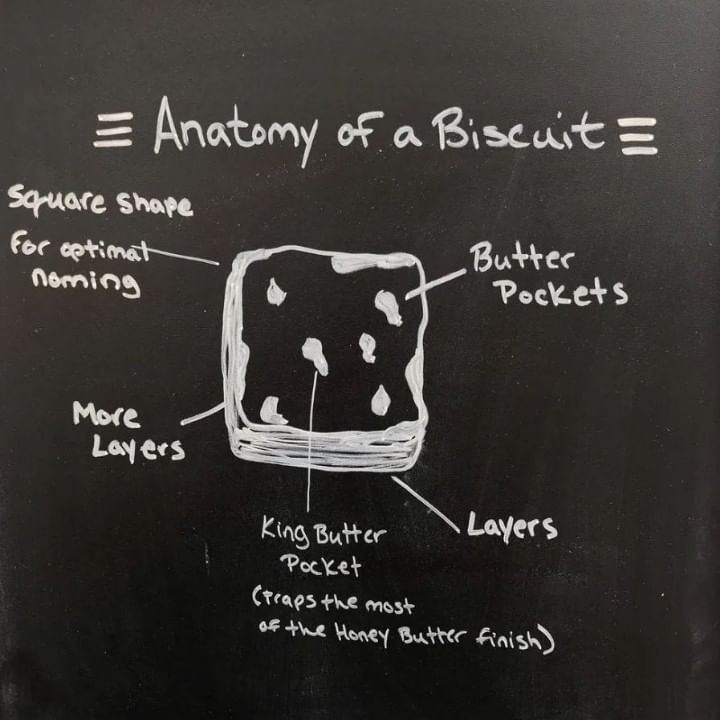 Anatomy of a Biscuit
Square shape
For optimal
noming
Butter
Pockets
More
Layers
Layers
King Butter
Pocket
(Traps the most
of the Honey Butter finish)